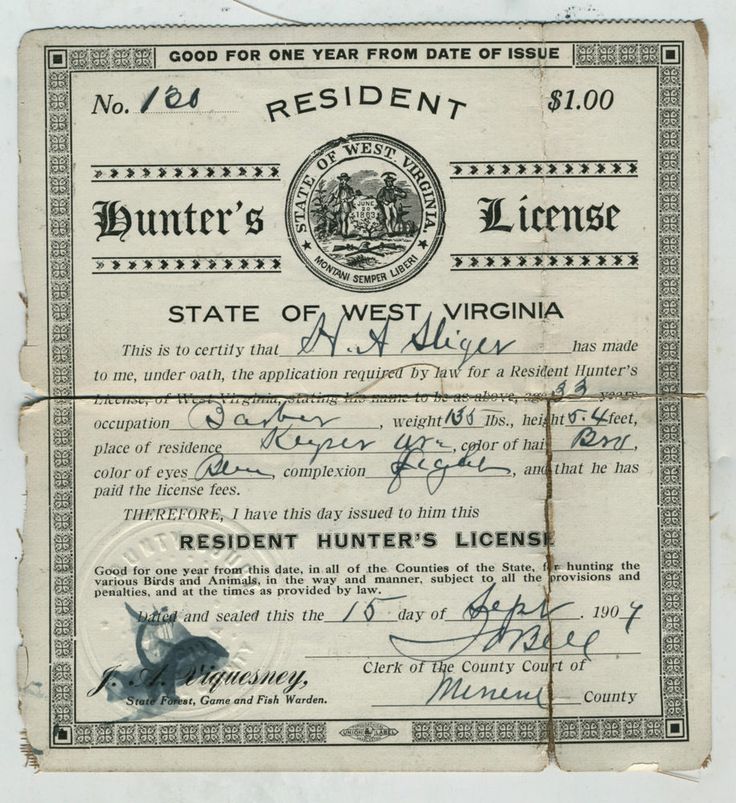 GOOD FOR ONE YEAR FROM DATE OF ISSUE
No. 130 RESIDENT $1.00
STATE OF WEST VIRGINIA
JUNE 20 1863
MONTANI SEMPER LIBERI
Hunter's License
STATE OF WEST VIRGINIA
This is to certify that H. A Sliger has made
to me, under oath, the application required by law for a Resident Hunter's
License, of West Virginia, stating his name to be as above, age 33 years
occupation Barber, weight 135 lbs., height 5.4 feet,
place of residence Keyser, color of hair Bro,
color of eyes Blue, complexion Light, and that he has
paid the license fees.
THEREFORE, I have this day issued to him this
RESIDENT HUNTER'S LICENSE
Good for one year from this date, in all of the Counties of the State, for hunting the
various Birds and Animals, in the way and manner, subject to all the provisions and
penalties, and at the times as provided by law.
Dated and sealed this the 15 day of Sept. 190
Bell
J. A. Viquesney, Clerk of the County Court of
State Forest, Game and Fish Warden. County
UNION LABEL